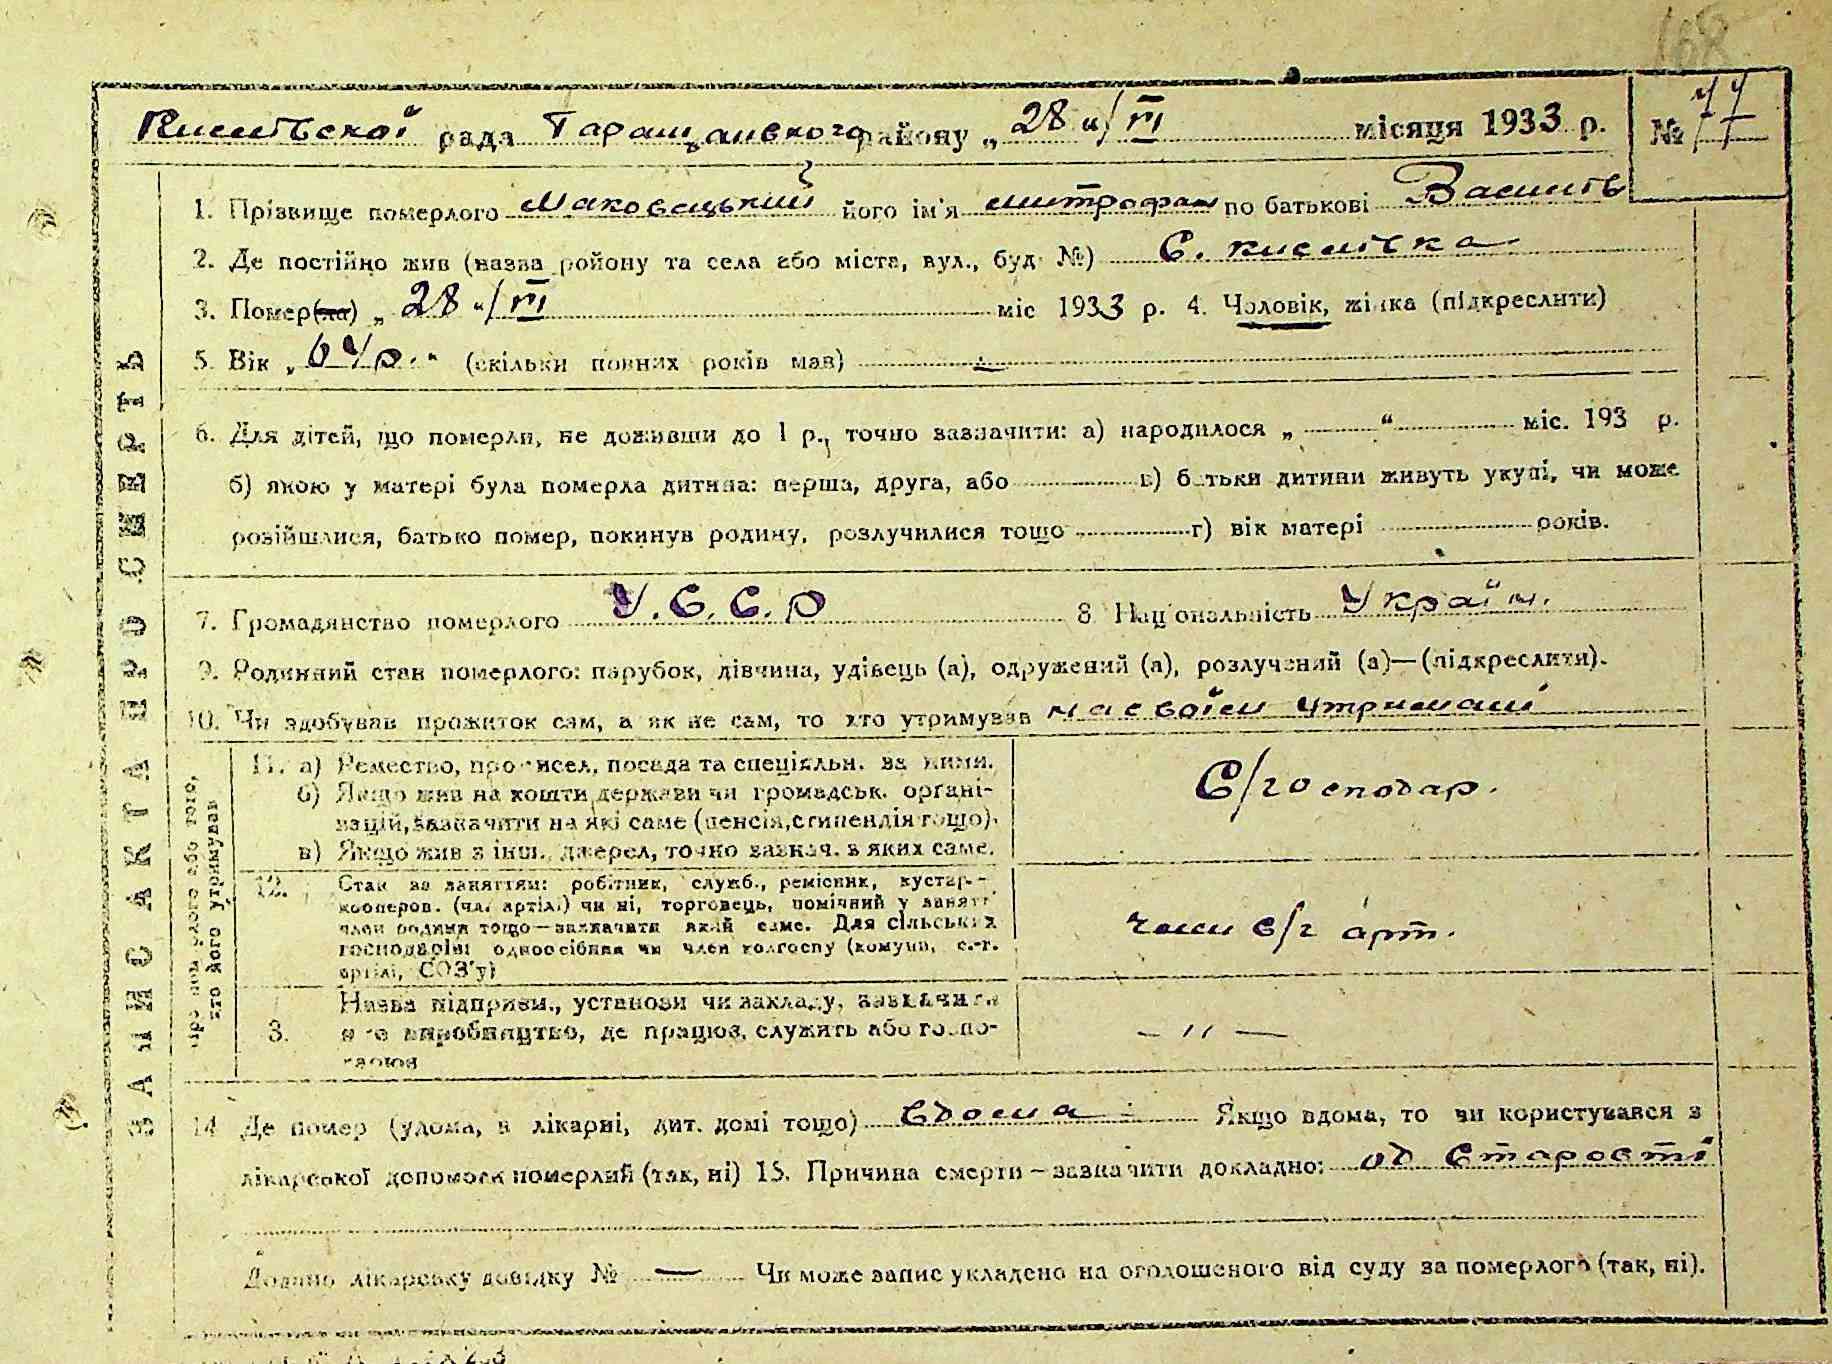 168
Кислівской рада Таращанского району „28“/VI місяця 1933 р. № 77
1. Прізвище померлого Маковецький його ім'я митрофан по батькові Василів
2. Де постійно жив (назва ройону та села або міста, вул., буд №) С. кислівка
3. Помер(ла) „28“/VI міс 1933 р. 4. Чоловік, жінка (підкреслити)
5. Вік „64р.“ (скільки повних років мав)
6. Для дітей, що померли, не доживши до 1 р., точно зазначити: а) народилося „ “ міс. 193 р.
б) якою у матері була померла дитина: перша, друга, або в) батьки дитини живуть укупі, чи може
розійшлися, батько помер, покинув родину, розлучилися тощо г) вік матері років.
7. Громадянство померлого У.С.С.Р 8 Національність Україн.
9. Родинний стан померлого: парубок, дівчина, удівець (а), одружений (а), розлучений (а)—(підкреслити).
10. Чи здобував прожиток сам, а як не сам, то хто утримував на своїм утримані
ЗАПИС АКТА ПРО СМЕРТЬ
Про померлого або того,
хто його утримував
11. а) Ремество, промисел, посада та спеціяльн. за ними.
б) Якщо жив на кошти держави чи громадськ. органі-
зацій, зазначити на які саме (пенсія, стипендія тощо).
в) Якщо жив з інш. джерел, точно зазнач. з яких саме.
С/господар.
12. Стан за заняттям: робітник, служб., ремісник, кустар-
кооперов. (чл. артілі) чи ні, торговець, помічний у занятт
член родини тощо—зазначити який саме. Для сільських
господарів: одноосібник чи член колгоспу (комуни, с.-г.
артілі, СОЗ'у)
член с/г арт.
3. Назва підприєм., установи чи закладу, зазначити
його виробництво, де працює, служить або госпо-
дарює
— „ —
14 Де помер (удома, в лікарні, дит. домі тощо) вдома Якщо вдома, то чи користувався з
лікарської допомоги померлий (так, ні) 15. Причина смерти—зазначити докладно: од старості
Додано лікарську довідку № — Чи може запис укладено на оголошеного від суду за померлого (так, ні).